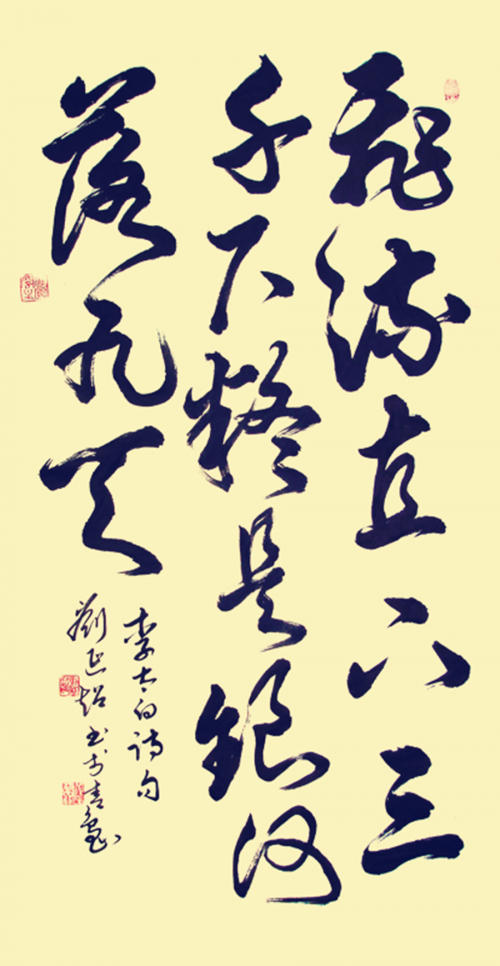 飛流直下三
千尺疑是銀河
落九天
李太白詩句
劉延 书於青